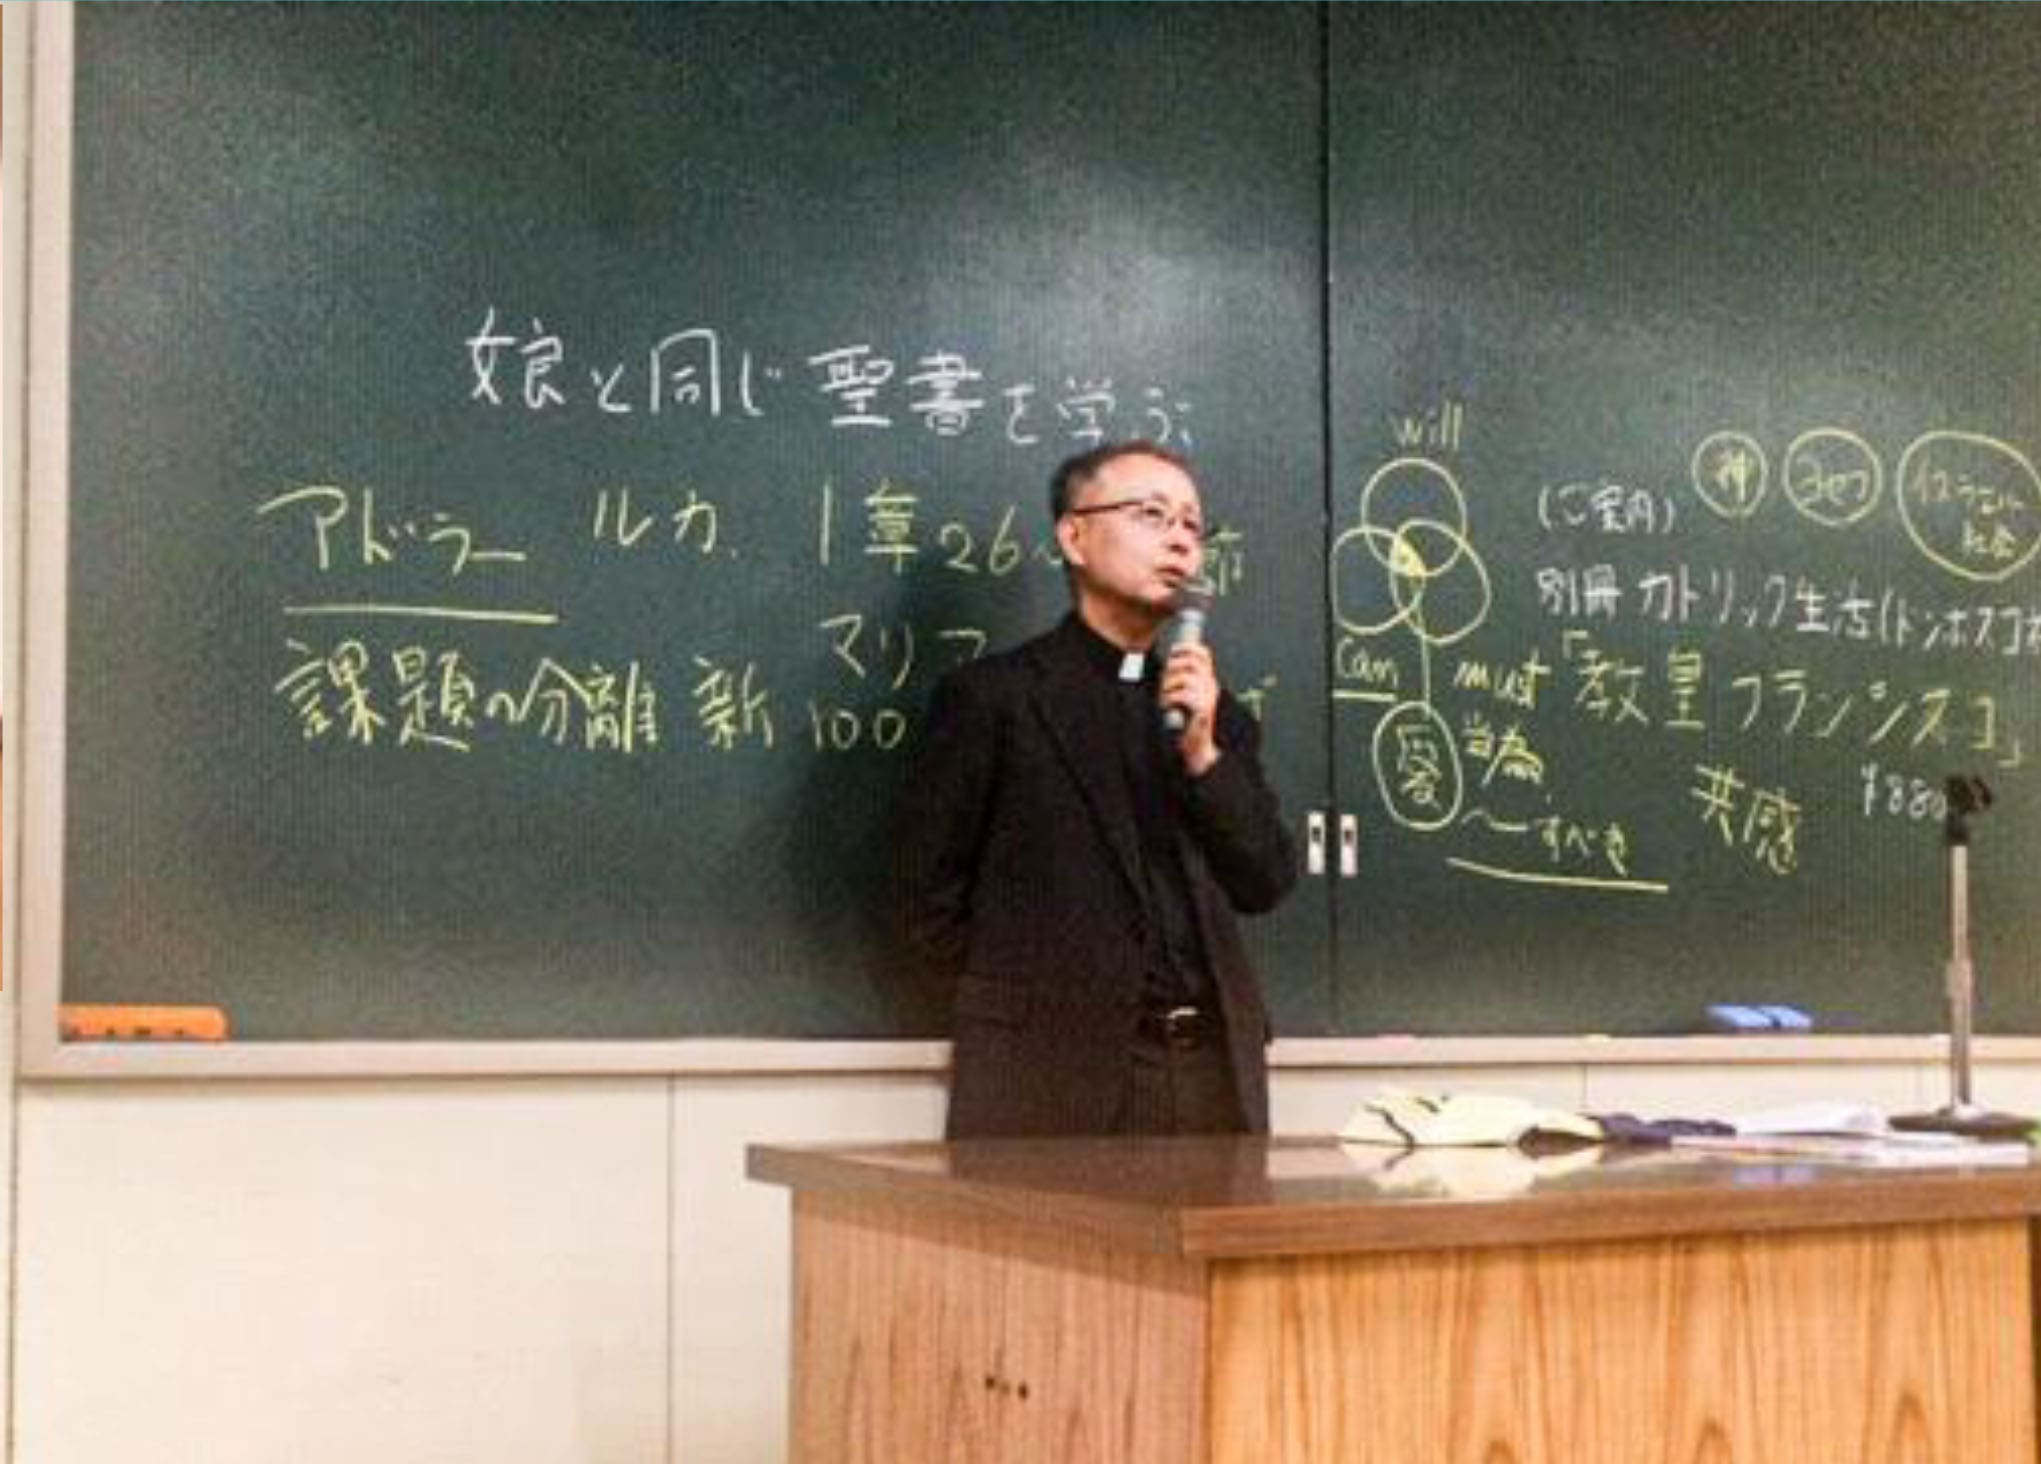 娘と同じ聖書を学ぶ
アドラー ルカ 1章26
マリア
課題の分離 新 100
will
can
must
愛
当為
〜すべき
神
ヨセフ
社会
(ご案内)
別冊 カトリック生活(ドンボスコ
「教皇フランシスコ」
共感
¥880